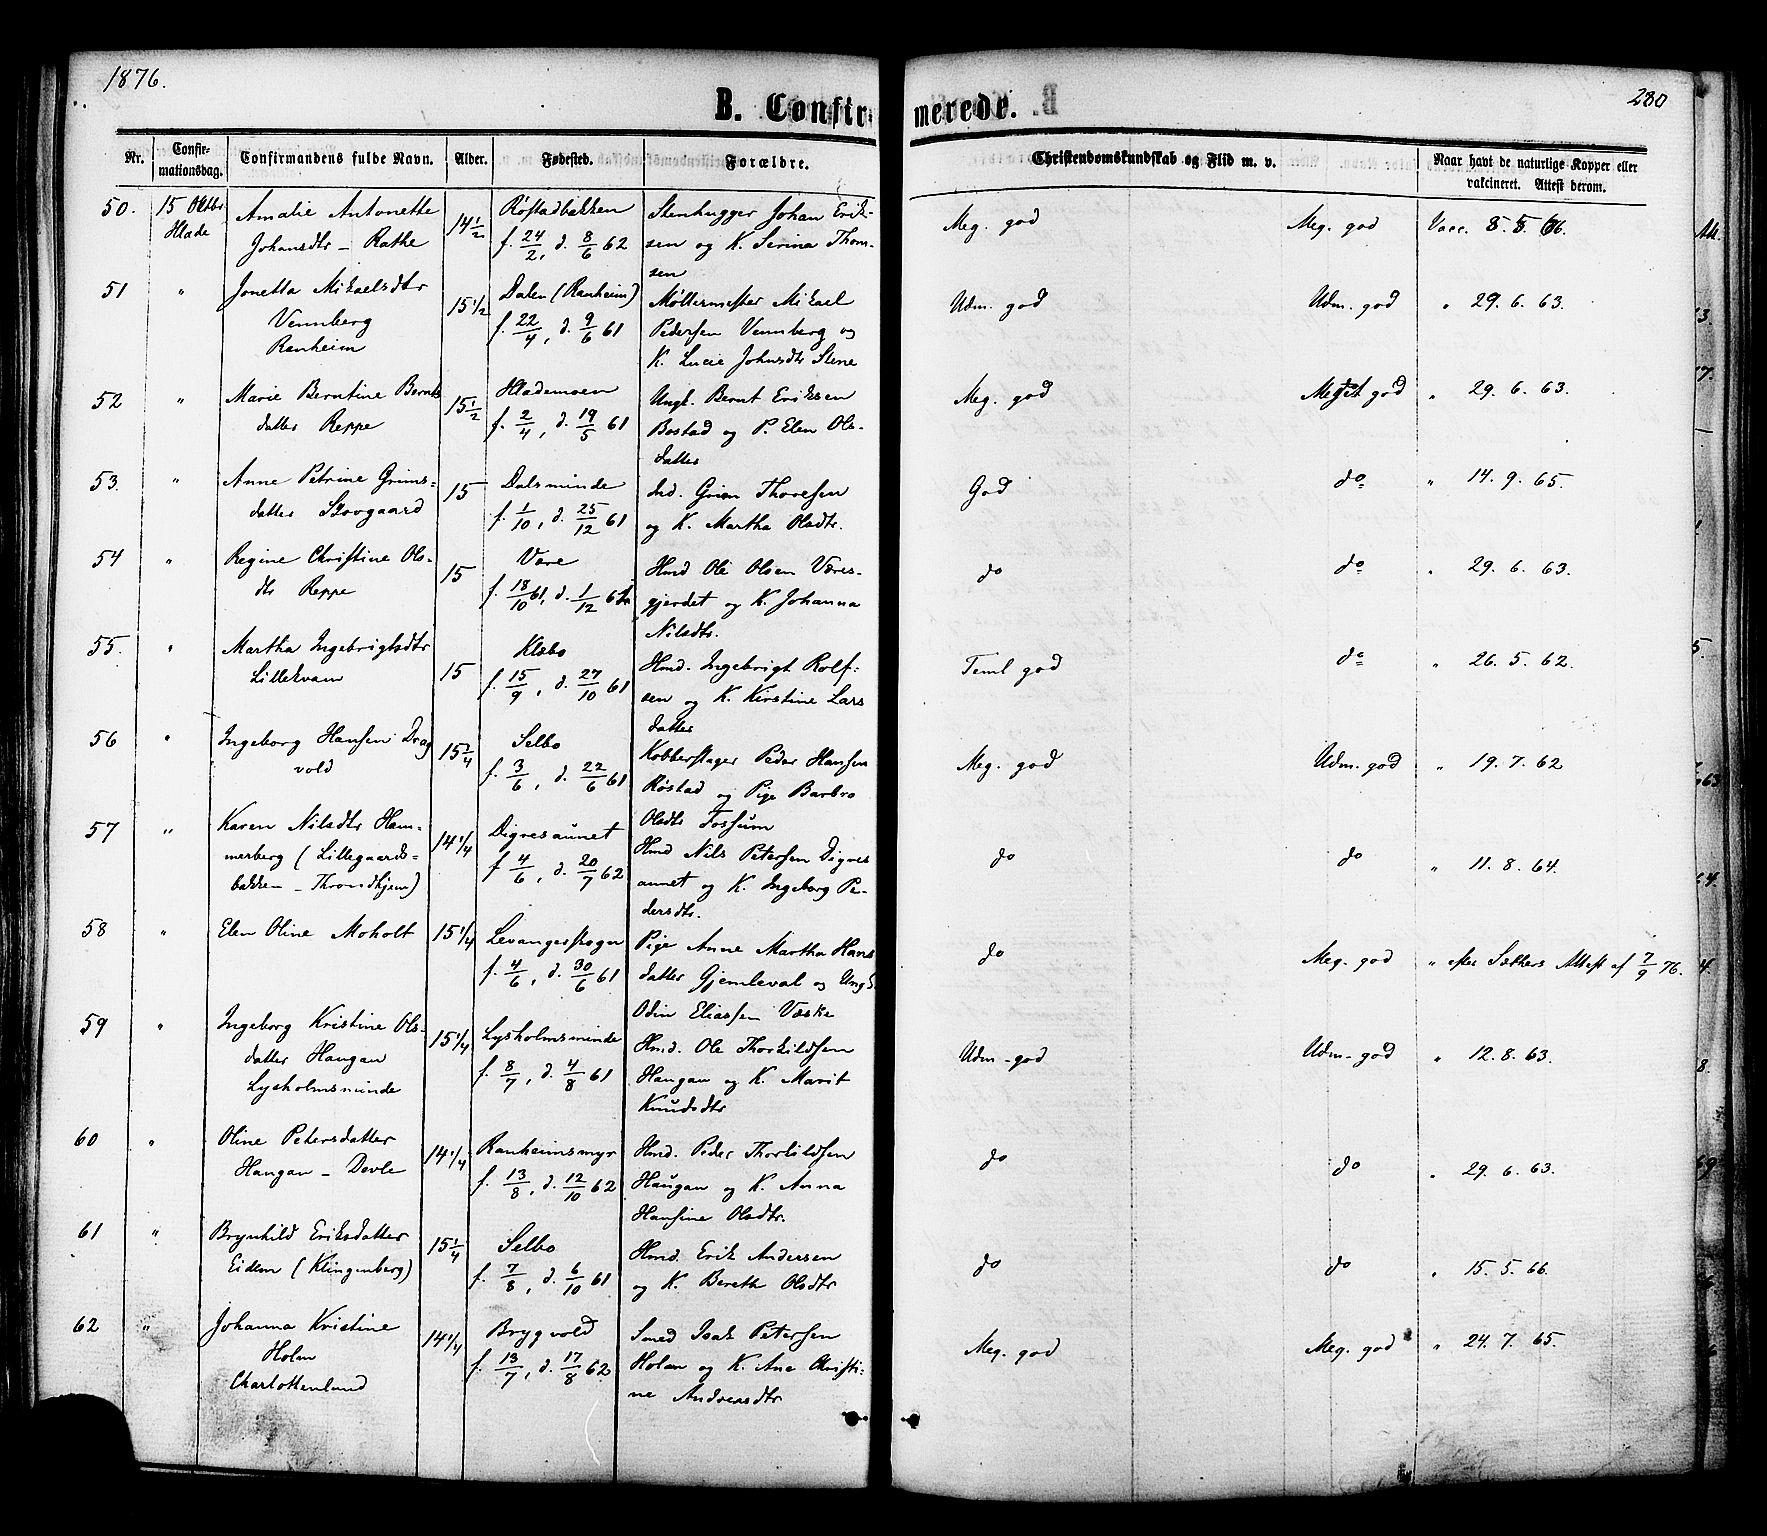 1876.
280
B. Confirmerede.
Nr. Confirmationsdag. Confirmandens fulde Navn. Alder. Fødested. Forældre. Christendomskundskab og Flid m. v. Naar havt de naturlige Kopper eller vakcineret. Attest derom.
50. 15 Oktbr Amalie Antonette 14 1/2 Røstadbakken Stenhugger Johan Erik- Meg. god Meg. god Vacc. 8. 5. 66.
Hlade Johansdtr - Rathe f. 24/2, d. 8/6 62 sen og K. Serina Thom-
sen
51 " Jonetta Mikaelsdtr 15 1/2 Dalen (Ranheim) Møllermester Mikael Udm. god Udm. god " 29. 6. 63.
Vennberg f. 22/4, d. 9/6 61 Pedersen Vennberg og
Ranheim K. Lucie Johnsdtr Stene
52 " Marie Berntine Bernts 15 1/2 Hlademoen Ungk. Bernt Eriksen Meg. god Meget god " 29. 6. 63.
datter Reppe f. 2/4, d. 19/5 61 Bostad og P. Elen Ols-
datter
53. " Anne Petrine Grims- 15 Dalsminde Ind. Grim Thoresen God do " 14. 9. 65.
datter Skovgaard f. 1/10, d. 25/12 61 og K. Martha Olsdtr.
54 " Regine Christine Ols- 15 Være Hmd Ole Olsen Væres- do do " 29. 6. 63.
dtr Reppe f. 18/10 61, d. 1/12 61 gjerdet og K. Johanna
Nilsdtr.
55. " Martha Ingebrigtsdtr 15 Klæbo Hmd. Ingebrigt Rolf- Teml god do " 26. 5. 62.
Lillekvam f. 15/9, d. 27/10 61 sen og K. Kirstine Lars
datter
56 " Ingeborg Hansen Drag 15 1/4 Selbo Kobberslager Peder Hansen Meg. god Udm. god " 19. 7. 62
vold f. 3/6, d. 22/6 61 Røstad og Pige Barbro
Olsdtr Fossum
57 " Karen Nilsdtr Ham- 14 1/4 Digresaunet Hmd Nils Petersen Digres do do " 11. 8. 64.
merberg (Lillegaards- f 4/6, d. 20/7 62 aunet og K. Ingeborg Pe-
bakken - Throndhjem) dersdtr.
58 " Elen Oline Moholt 15 1/4 Levangersogn Pige Anne Martha Hans do Meg. god " efter Sælhers Attest af 7/9 76.
f. 4/6, d. 30/6 61 datter Gjemleval og Ungk.
Odin Eliassen Væske
59 " Ingeborg Kristine Ols- 15 1/4 Lysholmsminde Hmd. Ole Thorkildsen Udm - god Udm - god " 12. 8. 63.
datter Haugan f. 8/7, d. 4/8 61 Haugan og K. Marit
Lysholmsminde Knudsdtr
60 " Oline Petersdatter 14 1/4 Ranheimsmyr Hmd. Peder Thorkildsen do do " 29. 6. 63.
Haugan - Devle f. 13/8, d. 12/10 62 Haugan og K. Anna
Hansine Olsdtr.
61 " Brynhild Eriksdatter 15 1/4 Selbo Hmd. Erik Andersen do do " 15. 5. 66.
Eidem (Klingenberg) f. 7/8, d. 6/10 61 og K. Bereth Olsdtr
62 " Johanna Kristine 14 1/4 Brygvold Smed Isak Petersen Meg. god Meg. god " 24. 7. 65.
Holm f. 13/7, d. 17/8 62 Holan og K. Ane Christi-
Charlottenlund ne Andersdtr